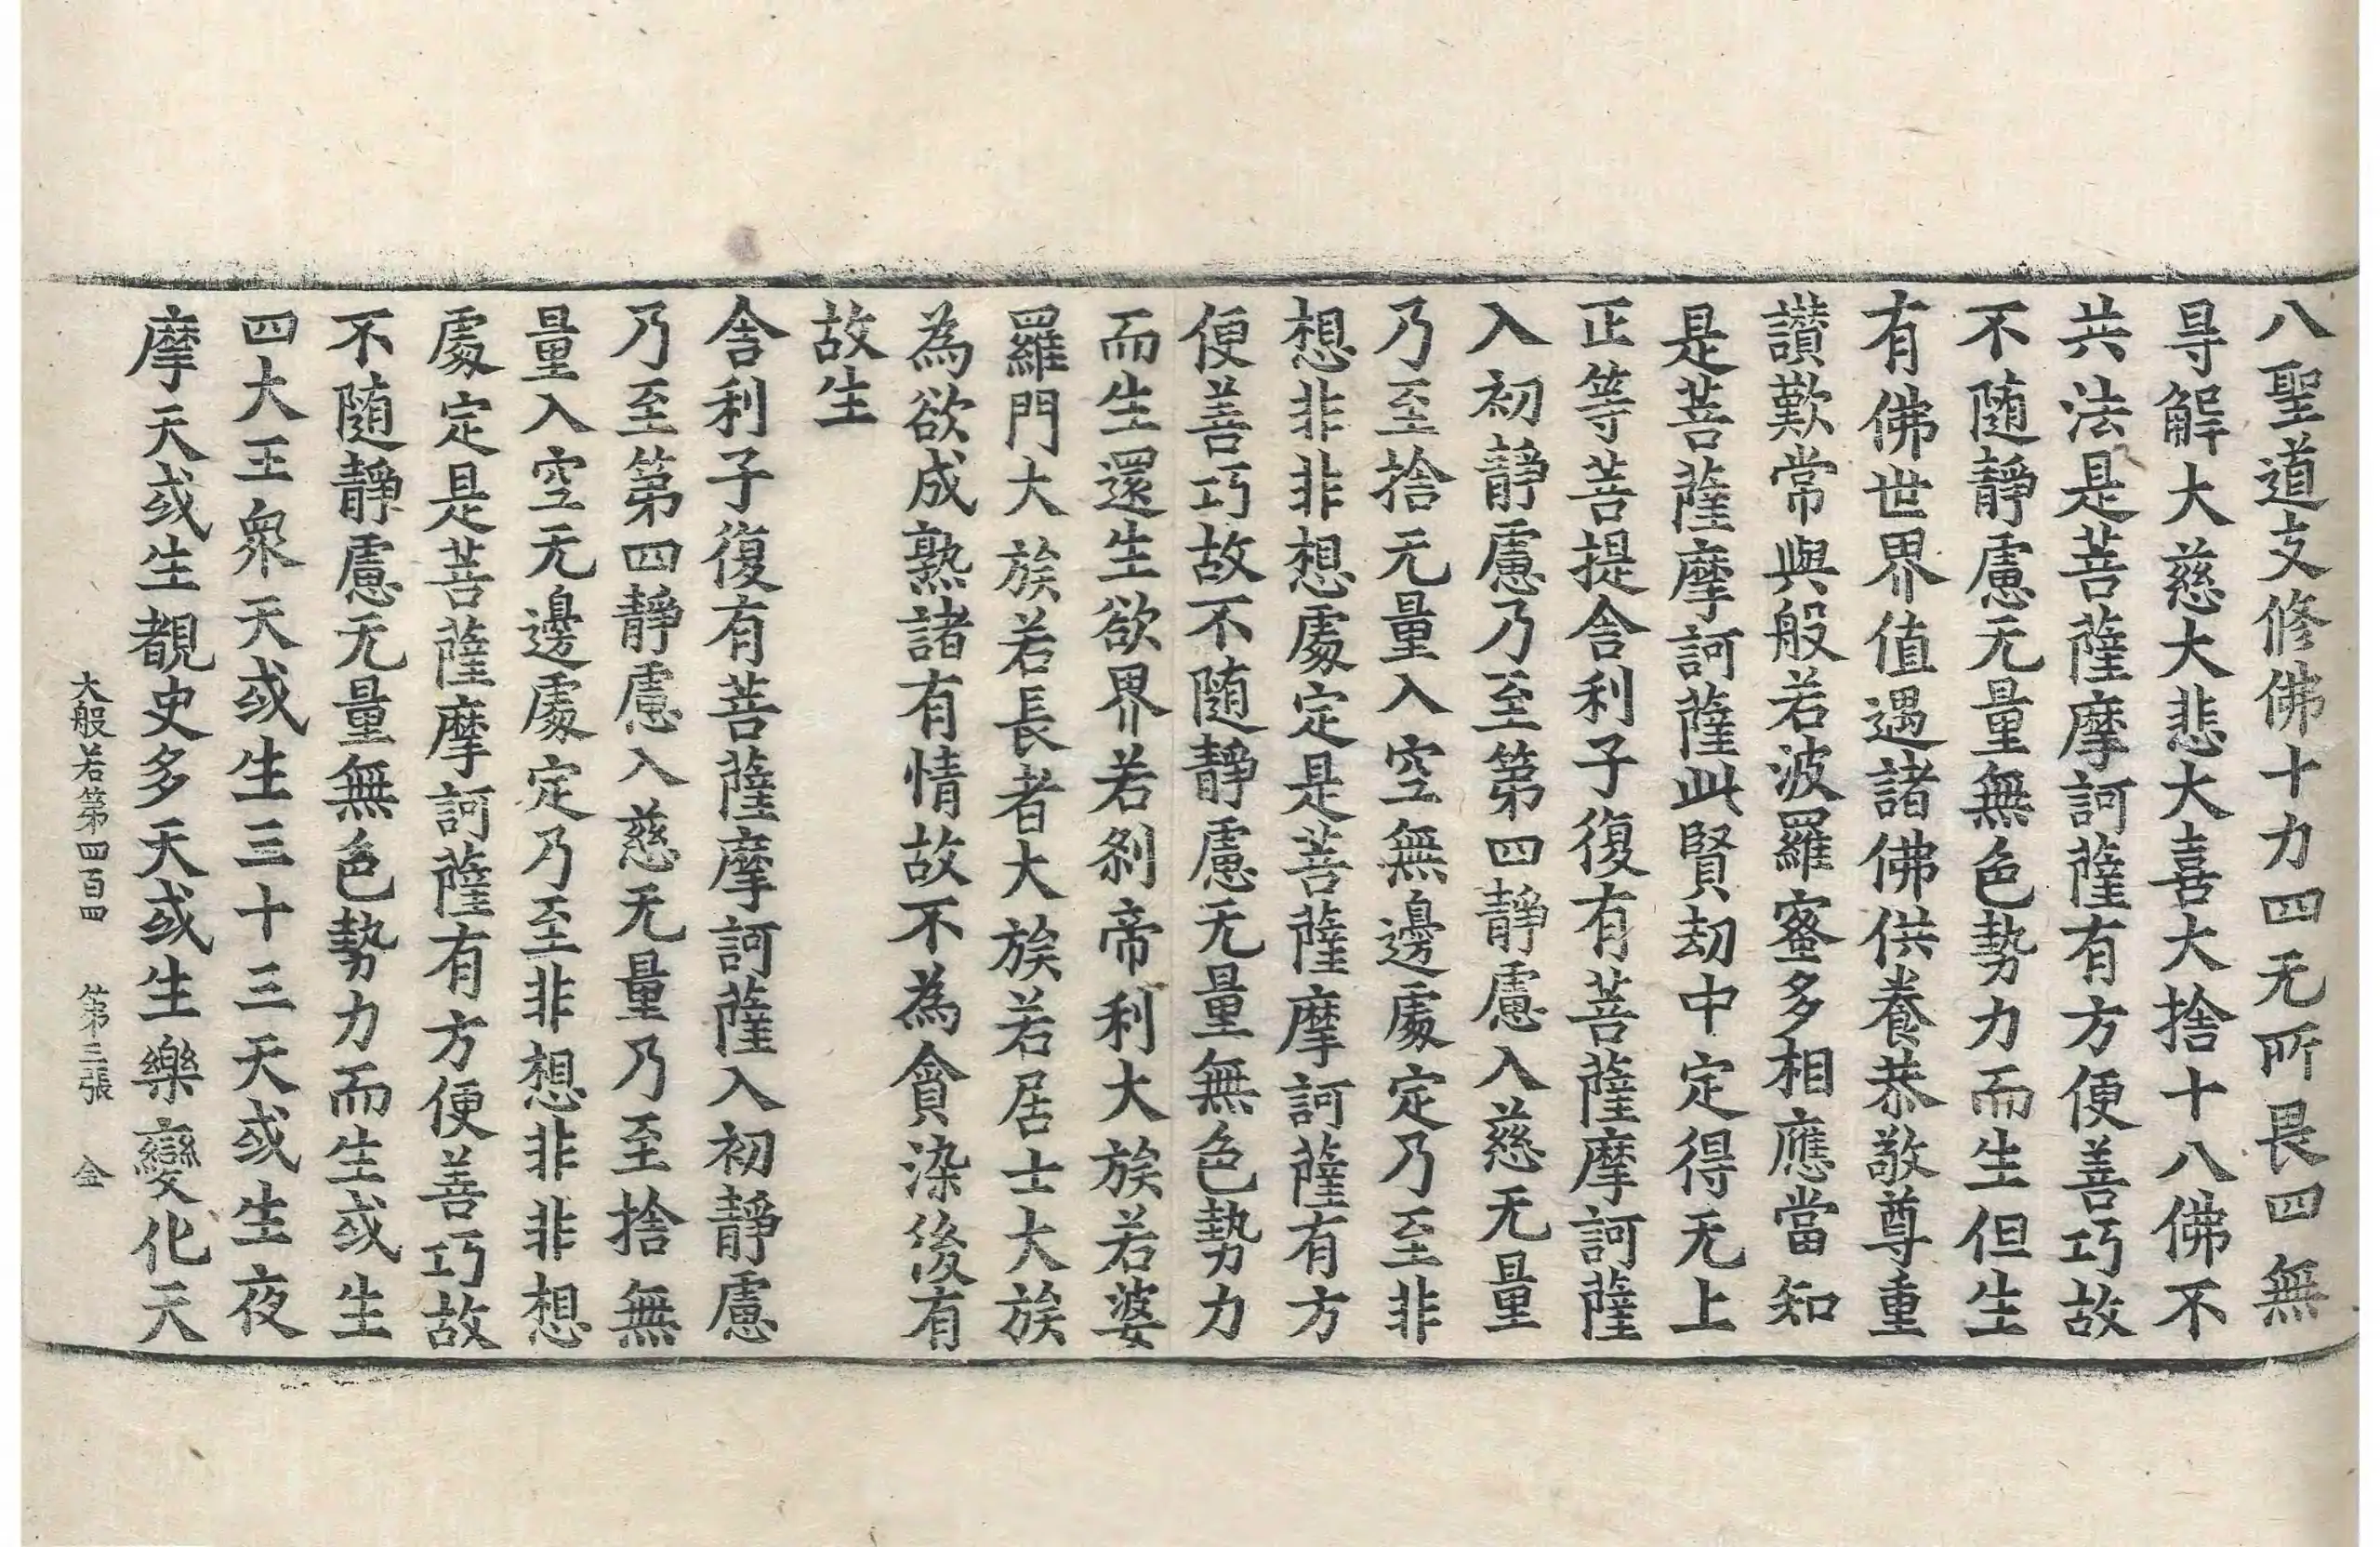 八聖道支修佛十力四无所畏四無
㝵解大慈大悲大喜大捨十八佛不
共法是菩薩摩訶薩有方便善巧故
不随靜慮无量無色勢力而生但生
有佛世界值遇諸佛供養恭敬尊重
讃歎常與般若波羅蜜多相應當知
是菩薩摩訶薩此賢劫中定得无上
正等菩提舍利子復有菩薩摩訶薩
入初靜慮乃至第四靜慮入慈无量
乃至捨无量入空無邊處定乃至非
想非非想處定是菩薩摩訶薩有方
便善巧故不随靜慮无量無色勢力
而生還生欲界若刹帝利大族若婆
羅門大族若長者大族若居士大族
為欲成熟諸有情故不為貪染後有
故生
舍利子復有菩薩摩訶薩入初靜慮
乃至第四靜慮入慈无量乃至捨無
量入空无邊處定乃至非想非非想
處定是菩薩摩訶薩有方便善巧故
不随靜慮无量無色勢力而生或生
四大王衆天或生三十三天或生夜
摩天或生覩史多天或生樂變化天
大般若第四百四 第三張 金